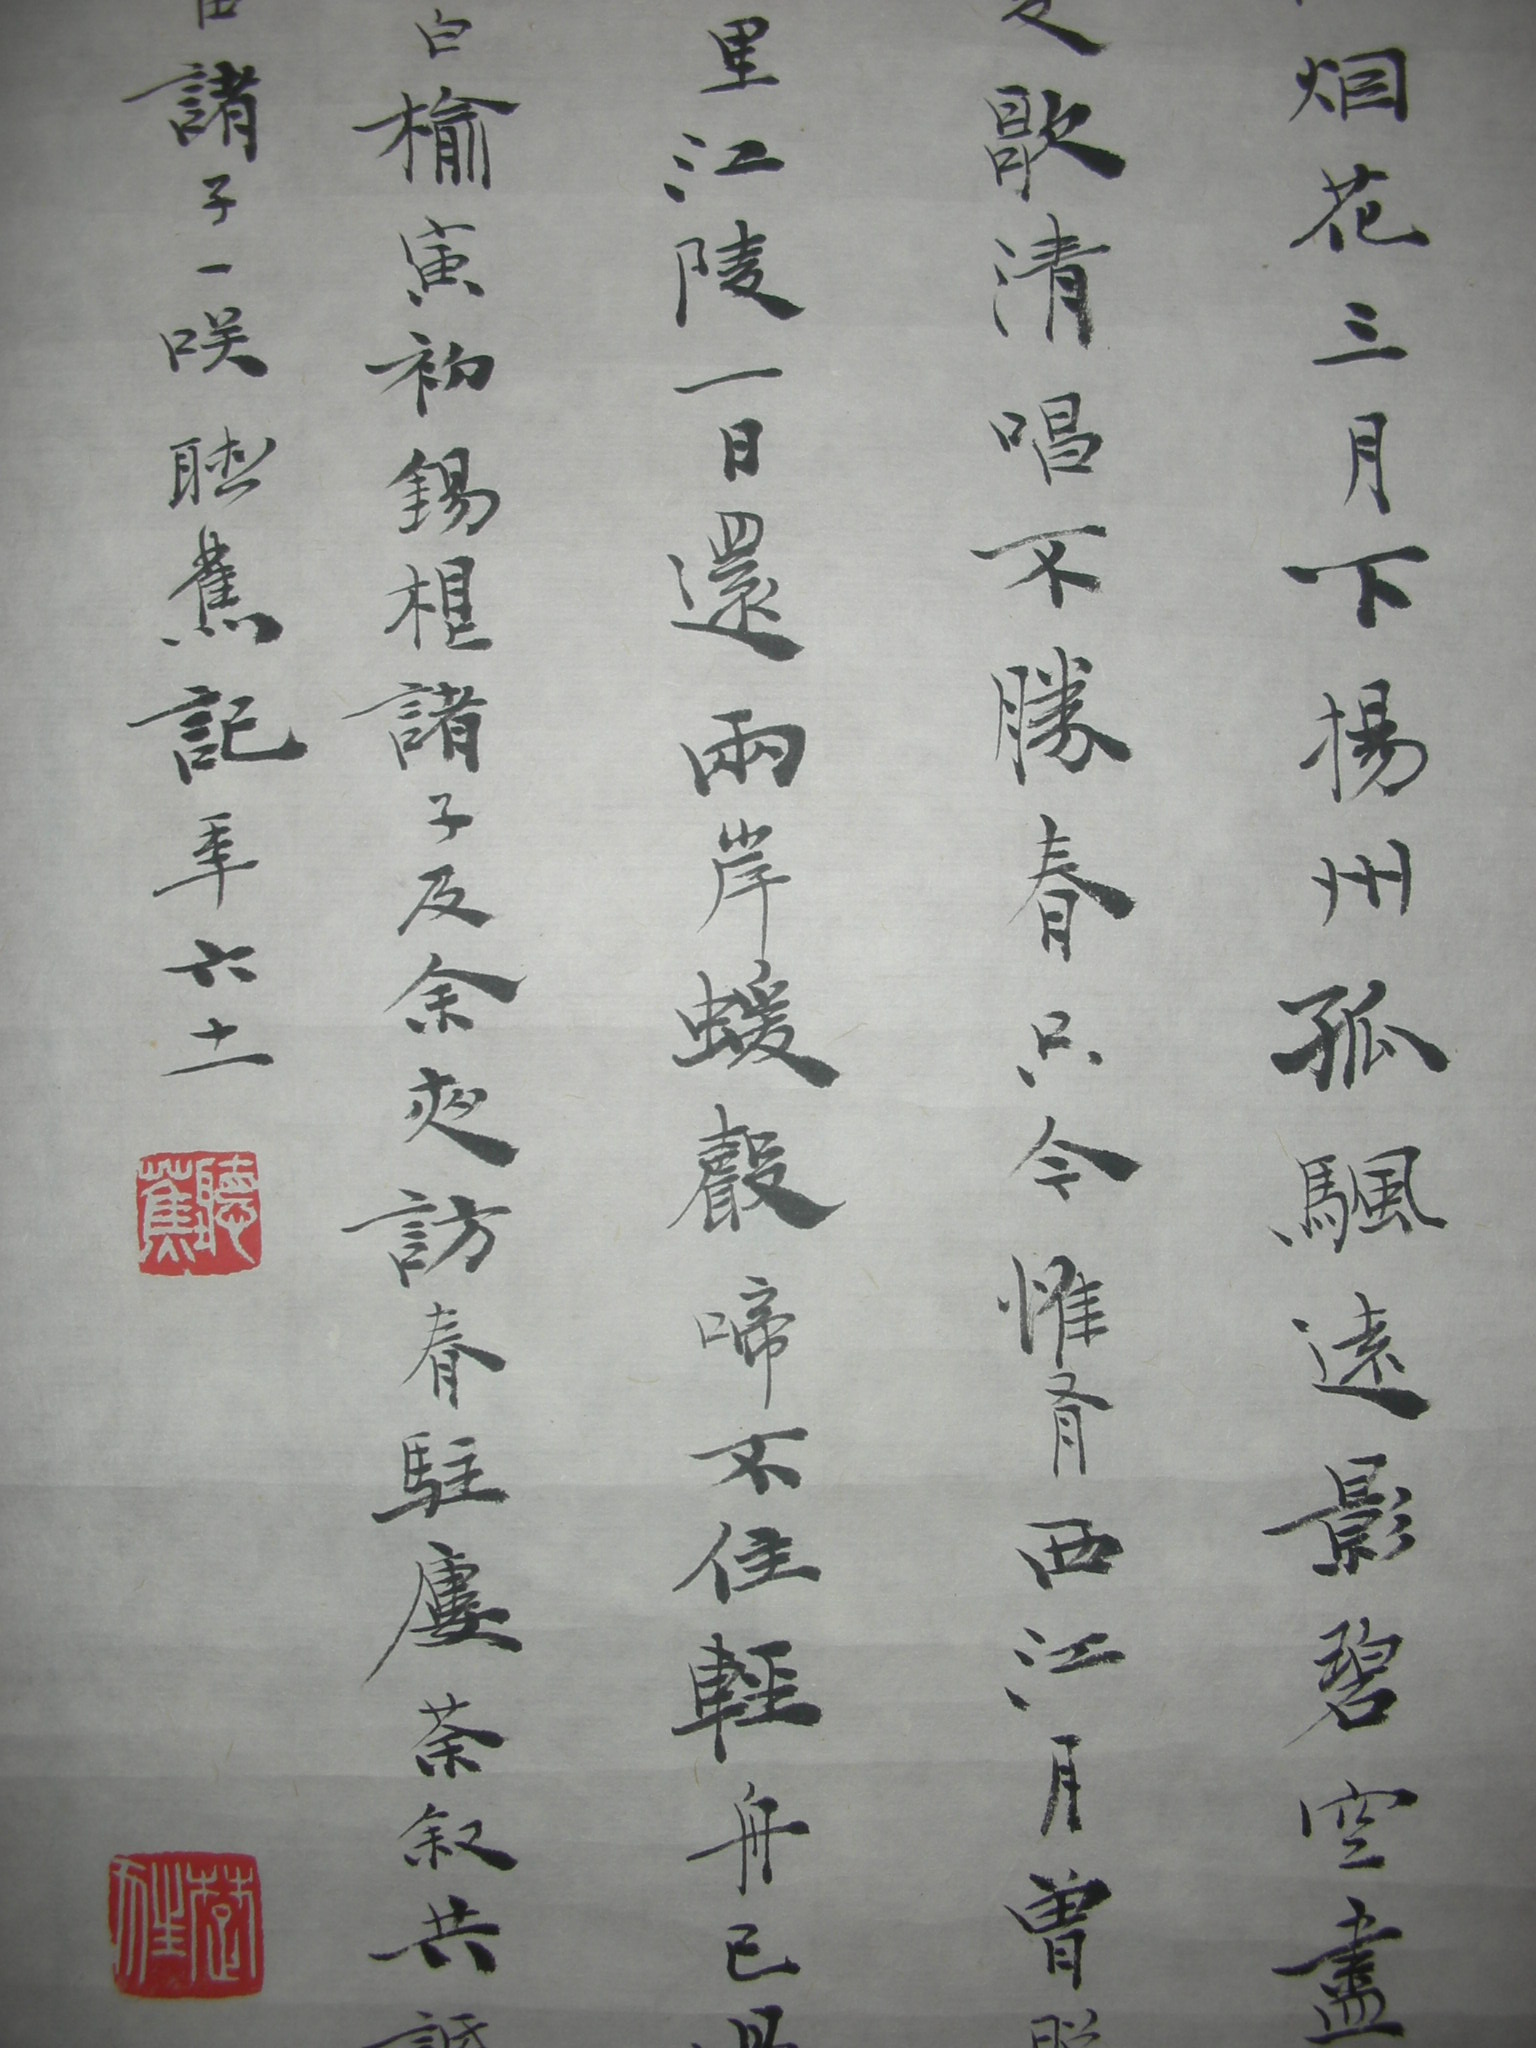 烟花三月下揚州孤颿遠影碧空盡
歌清唱不勝春只今惟有西江月曾照
里江陵一日還兩岸蝯聲啼不住輕舟已過
白榆寅初錫柜諸子及余夜訪春駐廔茶叙共
諸子一咲聽蕉記年六十一
聽蕉